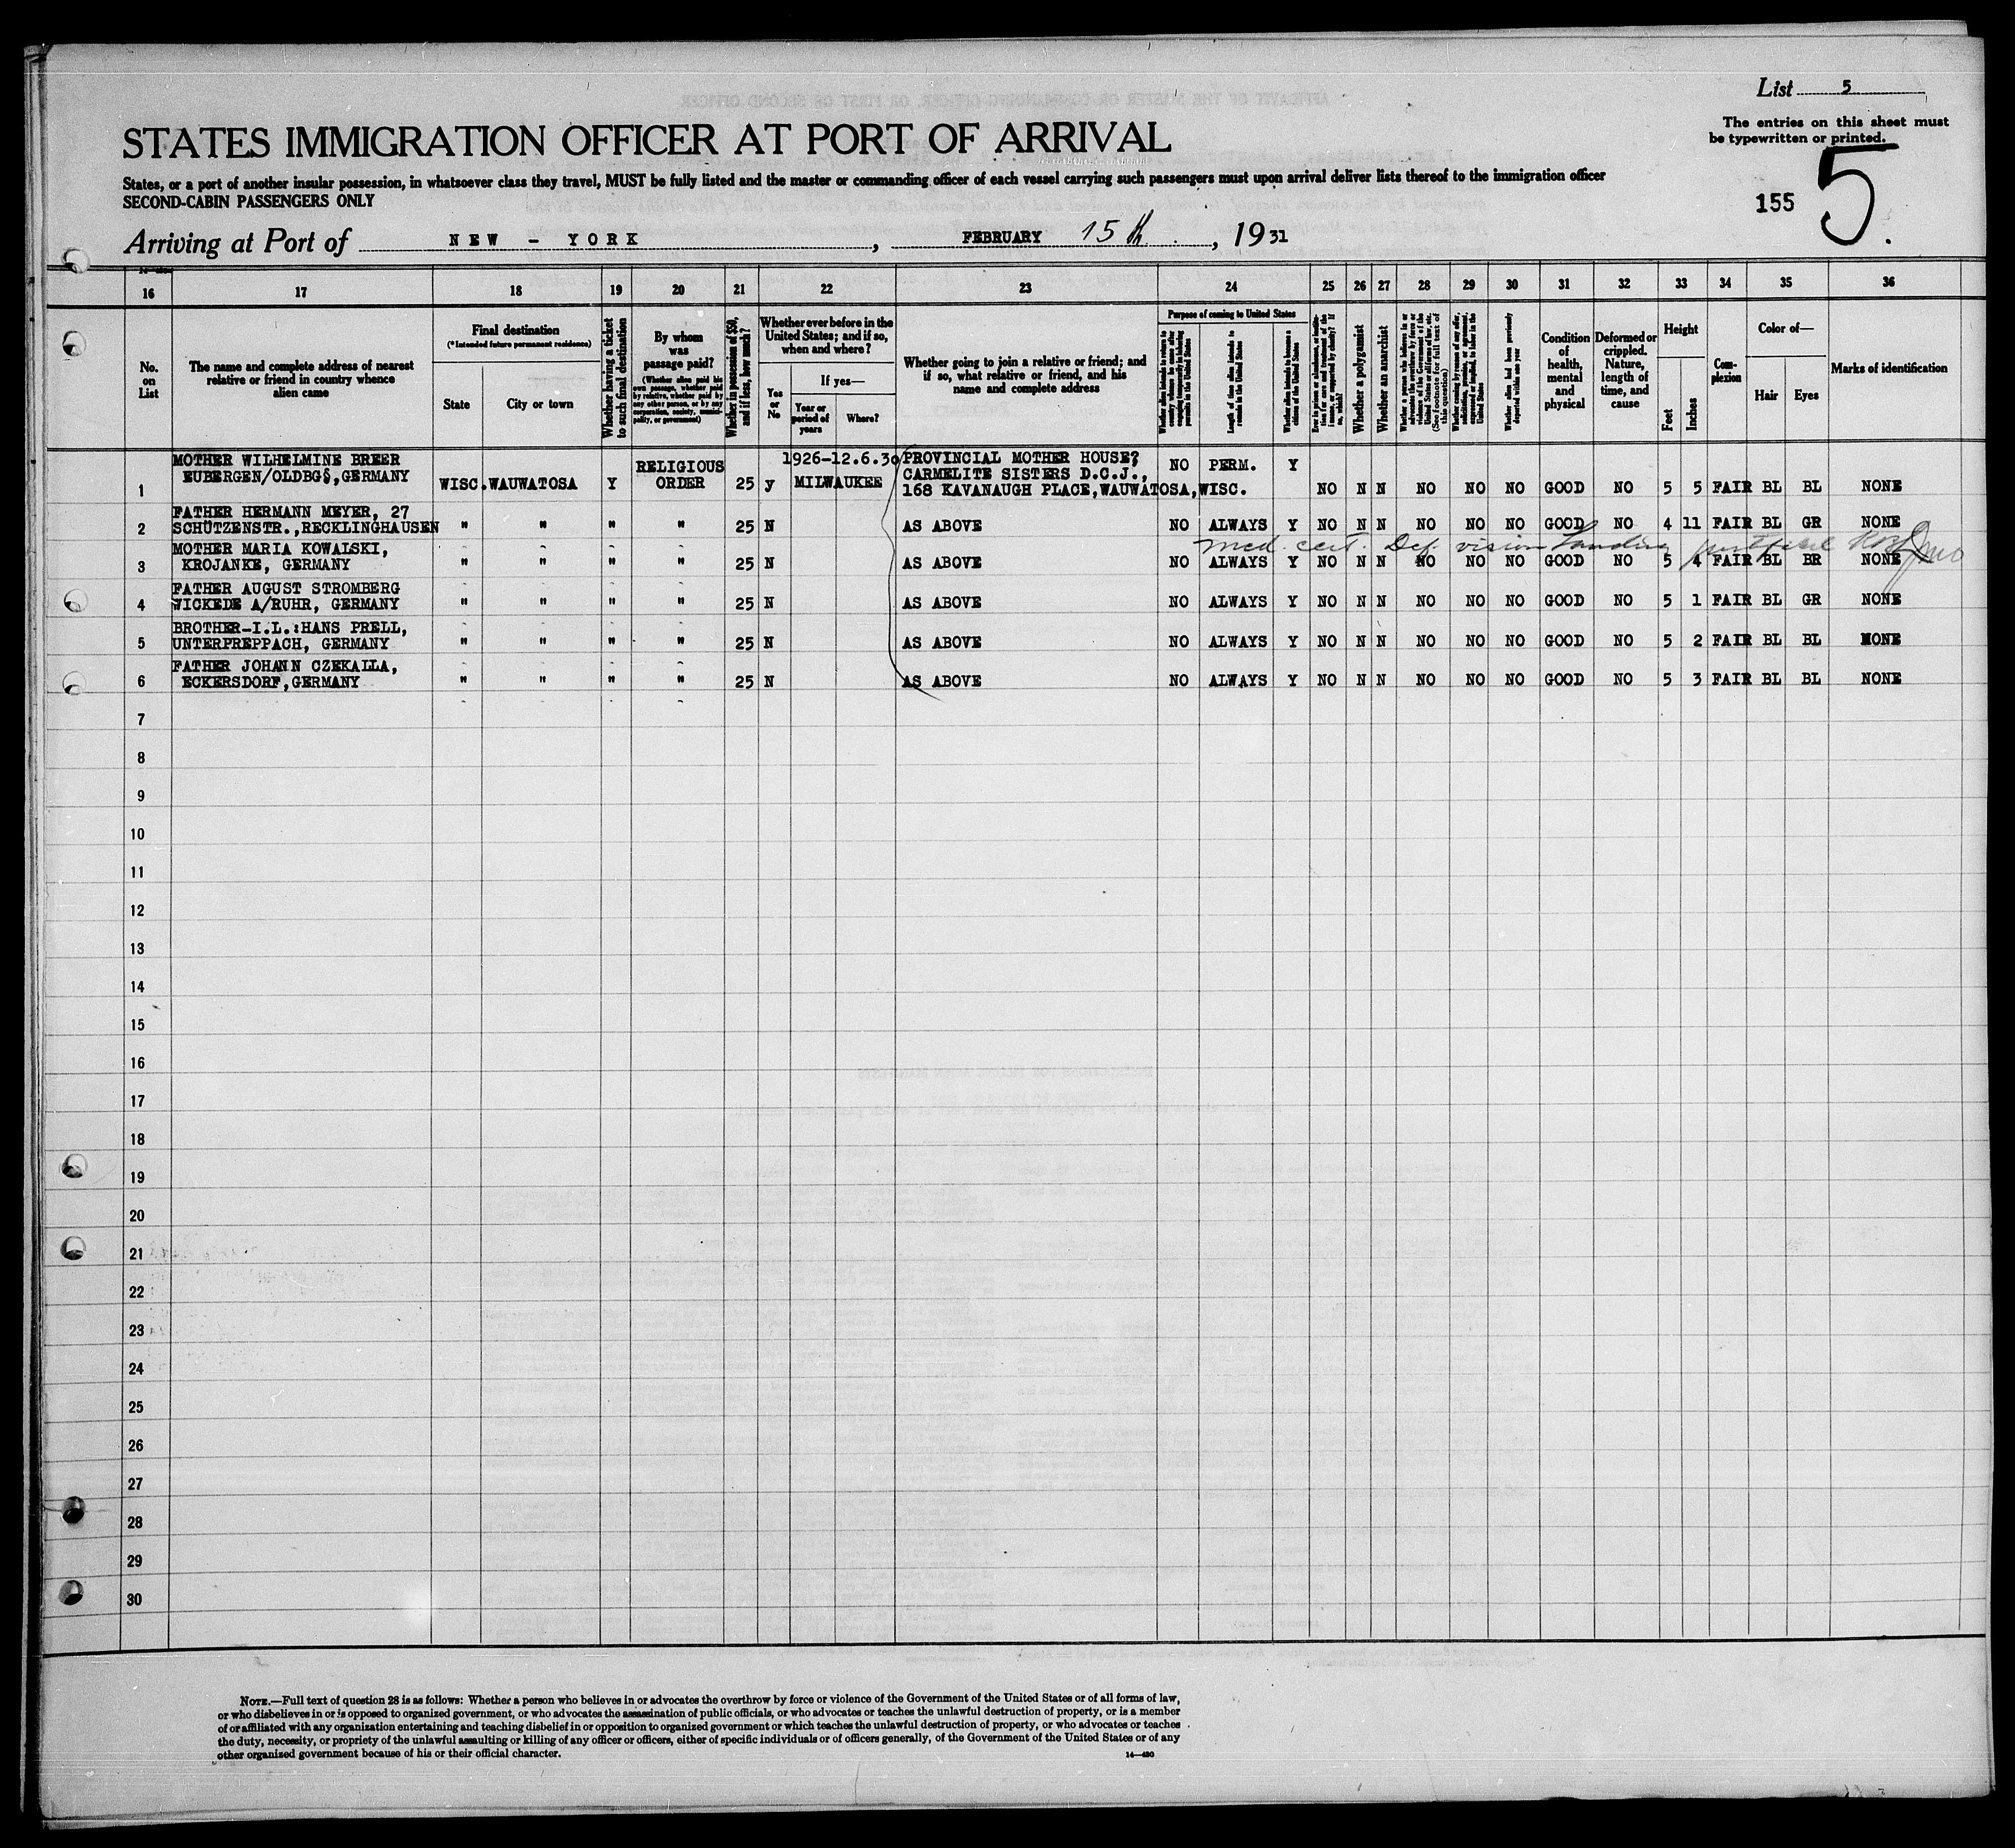 List 5
STATES IMMIGRATION OFFICER AT PORT OF ARRIVAL
The entries on this sheet must
be typewritten or printed.
States, or a port of another insular possession, in whatsoever class they travel, MUST be fully listed and the master or commanding officer of each vessel carrying such passengers must upon arrival deliver lists thereof to the immigration officer
SECOND-CABIN PASSENGERS ONLY
155 5.
Arriving at Port of NEW - YORK, FEBRUARY 15th, 1931
16 17 18 19 20 21 22 23 24 25 26 27 28 29 30 31 32 33 34 35 36
No. on List
The name and complete address of nearest relative or friend in country whence alien came
Final destination
(*Intended future permanent residence)
State City or town
Whether having a ticket to such final destination
By whom was passage paid?
(Whether alien paid his own passage, whether paid by relative, whether paid by any other person, or by any corporation, society, municipality, or government)
Whether in possession of $50, and if less, how much?
Whether ever before in the United States; and if so, when and where?
Yes or No
If yes—
Year or period of years Where?
Whether going to join a relative or friend; and if so, what relative or friend, and his name and complete address
Purpose of coming to United States
Whether alien intends to return to country whence he came after engaging temporarily in laboring pursuits in the United States
Length of time alien intends to remain in the United States
Whether alien intends to become a citizen of the United States
Whether a polygamist
Whether an anarchist
Whether alien had been previously deported within one year
Condition of health, mental and physical
Deformed or crippled. Nature, length of time, and cause
Height
Feet Inches
Complexion
Color of—
Hair Eyes
Marks of identification
1 MOTHER WILHELMINE BREER
EUBERGEN/OLDBG§,GERMANY WISC. WAUWATOSA Y RELIGIOUS ORDER 25 y 1926-12.6.30 MILWAUKEE PROVINCIAL MOTHER HOUSE?
CARMELITE SISTERS D.C.J.,
168 KAVANAUGH PLACE,WAUWATOSA,WISC. NO PERM. Y NO N N NO NO NO GOOD NO 5 5 FAIR BL BL NONE
2 FATHER HERMANN MEYER, 27
SCHÜTZENSTR.,RECKLINGHAUSEN " " " " 25 N AS ABOVE NO ALWAYS Y NO N N NO NO NO GOOD NO 4 11 FAIR BL GR NONE
med. cert. Def. vision Landing
3 MOTHER MARIA KOWALSKI,
KROJANKE, GERMANY " " " " 25 N AS ABOVE NO ALWAYS Y NO N N NO NO NO GOOD NO 5 4 FAIR BL BR NONE
4 FATHER AUGUST STROMBERG
WICKEDE A/RUHR, GERMANY " " " " 25 N AS ABOVE NO ALWAYS Y NO N N NO NO NO GOOD NO 5 1 FAIR BL GR NONE
5 BROTHER-I.L.:HANS PRELL,
UNTERPREPPACH, GERMANY " " " " 25 N AS ABOVE NO ALWAYS Y NO N N NO NO NO GOOD NO 5 2 FAIR BL BL NONE
6 FATHER JOHANN CZEKALLA,
ECKERSDORF,GERMANY " " " " 25 N AS ABOVE NO ALWAYS Y NO N N NO NO NO GOOD NO 5 3 FAIR BL BL NONE
7
8
9
10
11
12
13
14
15
16
17
18
19
20
21
22
23
24
25
26
27
28
29
30
NOTE.—Full text of question 28 is as follows: Whether a person who believes in or advocates the overthrow by force or violence of the Government of the United States or of all forms of law,
or who disbelieves in or is opposed to organized government, or who advocates the assassination of public officials, or who advocates or teaches the unlawful destruction of property, or is a member
of or affiliated with any organization entertaining and teaching disbelief in or opposition to organized government or which teaches the unlawful destruction of property, or who advocates or teaches
the duty, necessity, or propriety of the unlawful assaulting or killing of any officer or officers, either of specific individuals or of officers generally, of the Government of the United States or of any
other organized government because of his or their official character.
14—430